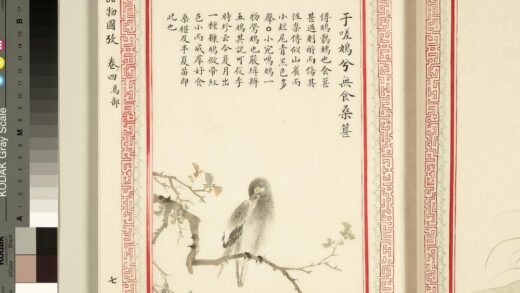 于嗟鳩兮無食桑葚
傳鳩鶻鳩也食葚
甚過則醉而傷其
性集傳似山雀而
小短尾青黑色多
聲○小宛鳴鳩一
物鶯鳩也嚴緝辨
五鳩其說可從李
時珍云今夏月出
一種糠鳩微帶紅
色小而成羣好食
桑椹及半夏苗即
此也
品物圖攷 卷四鳥部
七
KODAK Gray Scale